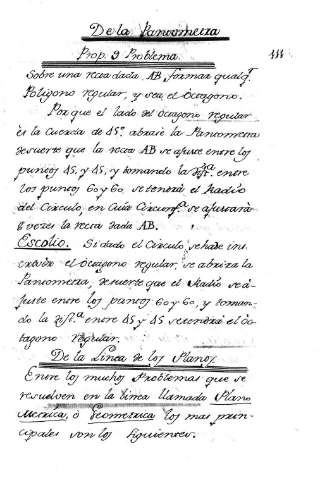 De la Pantometra
Prop. 9 Problema.
111
Sobre una recta dada AB, formar qualq.r
Poligono regular, y sea el Octagono.
Por que el lado del Octagono regular
es la Cuerda de 45.º abrase la Pantometra
desuerte que la recta AB se ajuste entre los
puntos 45, y 45, y tomando la dist.ª entre
los puntos 60 y 60 se tendrá el Radio
del Circulo, en Cuia Circunf.ª se ajustará
8 veces la recta dada AB.
Escolio. Si dado el Circulo, se ha de ins-
cribir el Octagono regular, se abrirá la
Pantometra, desuerte que el Radio se a-
juste entre los puntos 60 y 60, y toman-
do la dist.ª entre 45 y 45 se tendrá el Oc-
tagono regular.
De la Linea de los Planos.
Entre los muchos Problemas que se
resuelven en la linea llamada Plano
metrica, ò Geometrica los mas prin-
cipales son los siguientes.